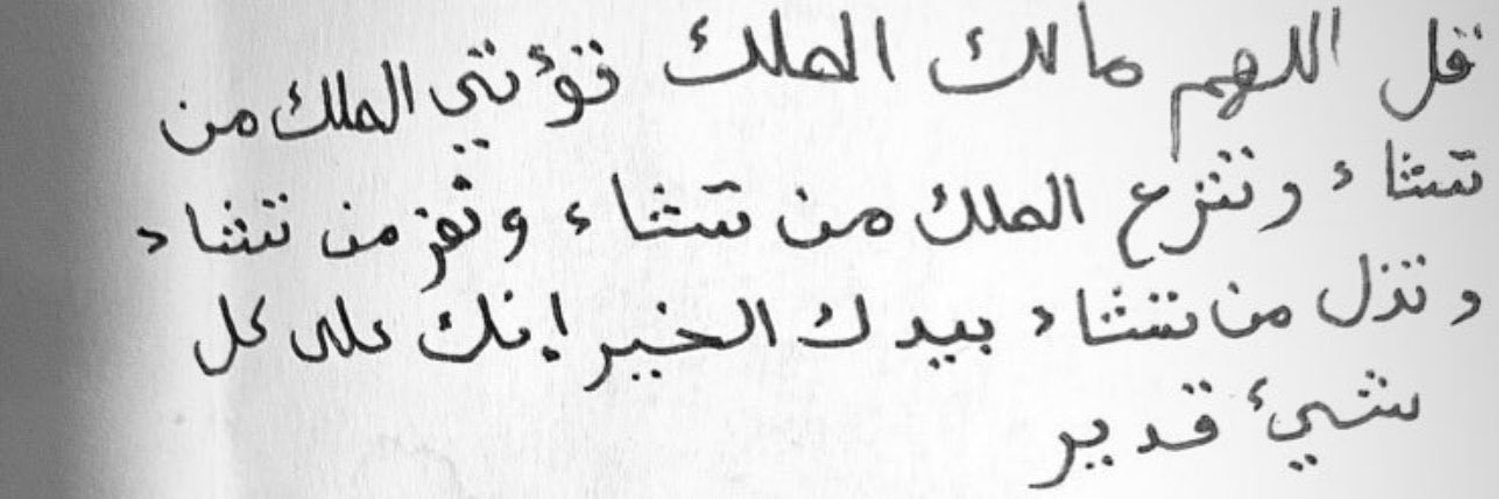 قل اللهم مالك الملك تؤتي الملك من
تشاء وتنزع الملك من تشاء وتعز من تشاء
وتذل من تشاء بيدك الخير إنك على كل
شيئ قدير